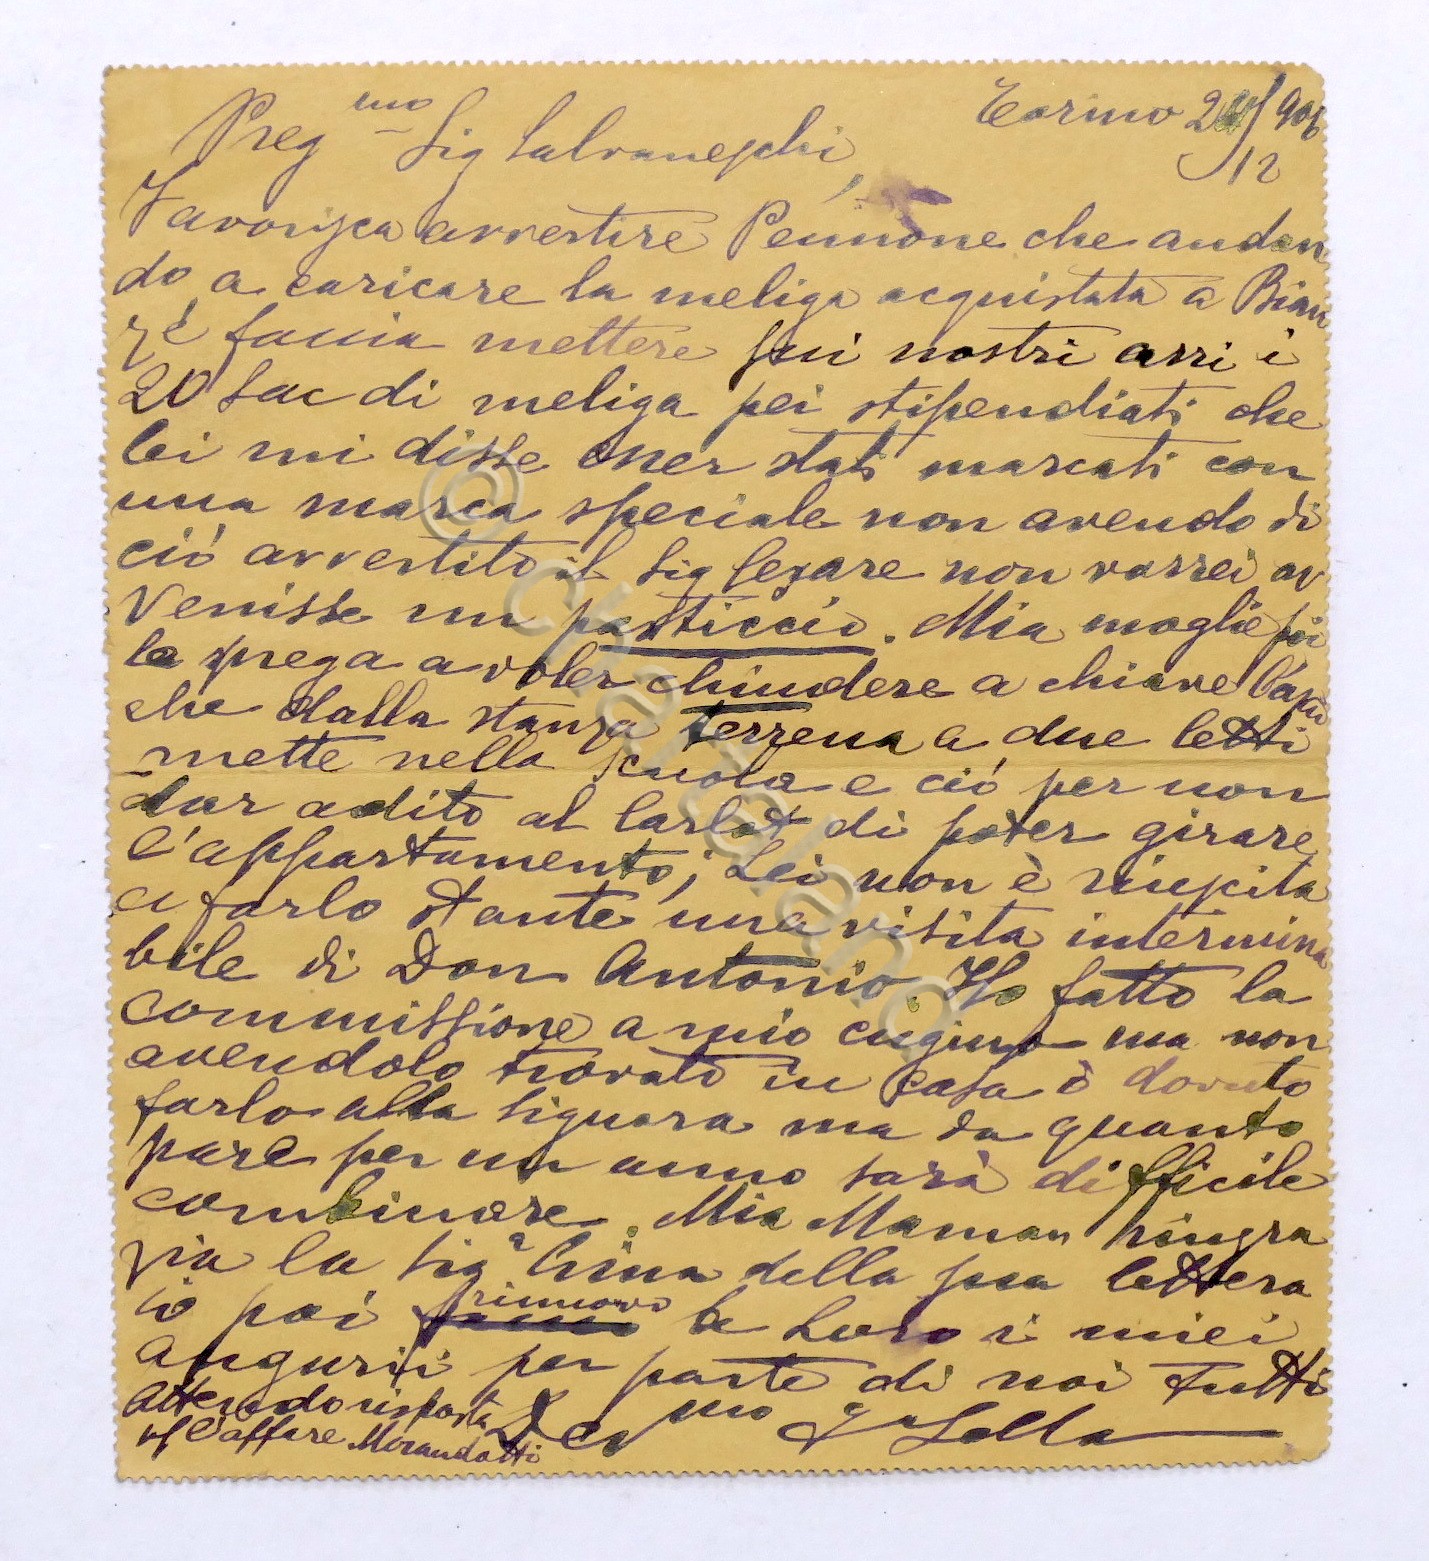 Torino 2 /90
12
Preg mo Sig Salvaneschi,
Favorisca avvertire Pennone che andan
do a caricare la meliga acquistata a Bian
zé faccia mettere sui nostri carri i
20 Sac di meliga pei stipendiati che
lei mi disse esser stati marcati con
una marca speciale non avendo di
ció avvertito il Sig Cesare non vorrei av
venisse un pasticcio. Mia moglie poi
la prega a voler chiudere a chiave l'
che dalla stanza terrena a due letti
mette nella scuola e ció per non
dar adito al di poter girare
l'appartamento; Lei non è riuscita
a farlo stante una visita intermina
bile di Don Antonio. Ho fatto la
commissione a mio cugino ma non
avendolo trovato in casa ò dovuto
farlo alla signora ma da quanto
pare per un anno sarà difficile
combinare. Mia Maman ringra
zia la Sig a della sua lettera
io poi rinnovo a Loro i miei
augurii per parte di noi tutti
attendo risposta Dev mo G Sella
l'affare Morandotti
© chartaland